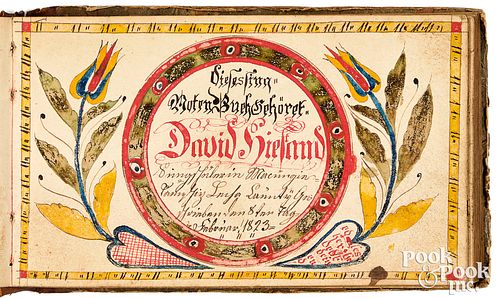 Dieses Sing=
Noten Buch Gehöret.
David Hiestand
Singschüler in Macungie
Taunschip Lecha Caunty Ge=
schrieben den 8ten Tag
Februar, 1823=
Pook
& Pook
Inc.